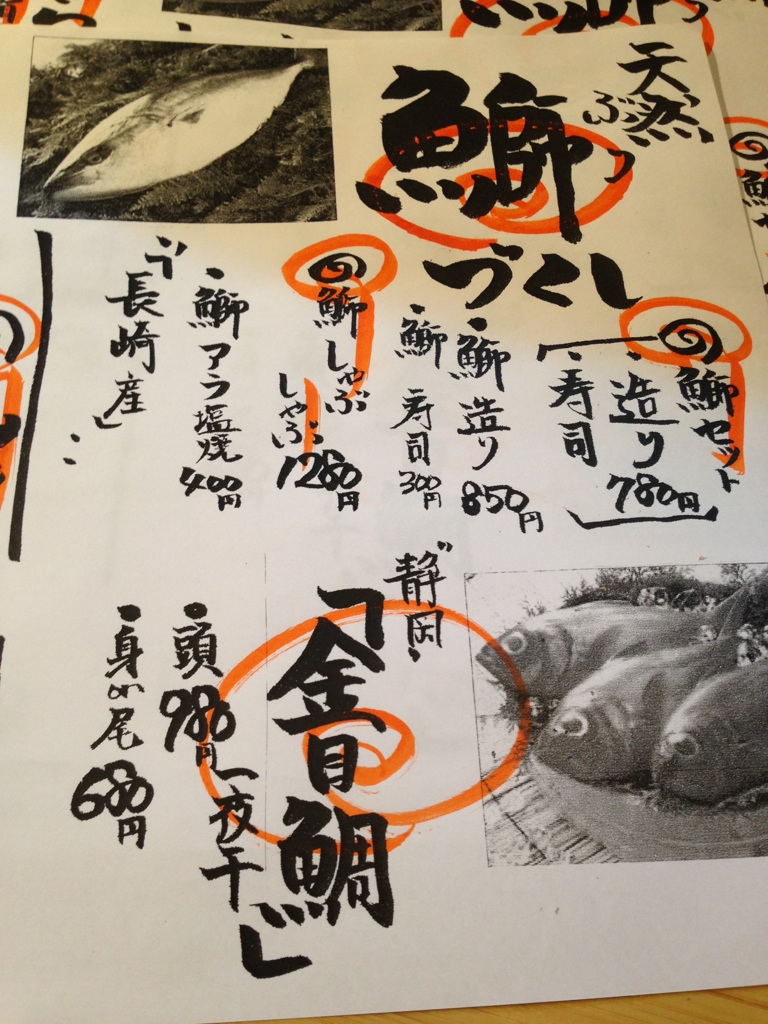 天然
ぶり
鰤づくし
鰤セット
・造り
・寿司
780円
・鰤造り 850円
・鰤寿司 300円
鰤しゃぶしゃぶ 1280円
・鰤アラ塩焼 400円
長崎産
静岡
「金目鯛
一夜干し」
・頭 980円
・身or尾 680円